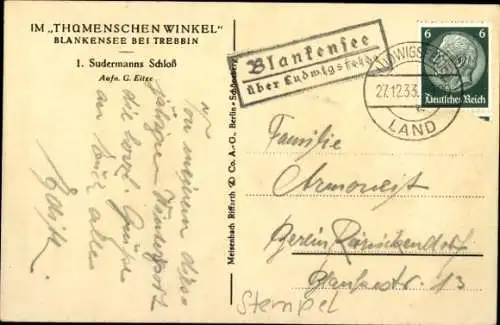 IM „THÜMENSCHEN WINKEL"
BLANKENSEE BEI TREBBIN
1. Sudermanns Schloß
Aufn. G. Eitze
Von meinem dies-
jährigen Wintersport
die herzl. Grüße
an Euch alle
Edith.
Meisenbach Riffarth & Co. A.-G., Berlin-Schöneberg
Blankensee
über Ludwigsfelde
LUDWIGSFELDE
27.12.33.
LAND
6 6
Deutsches Reich
Familie
Armoneit
Berlin Reinickendorf
13
Stempel